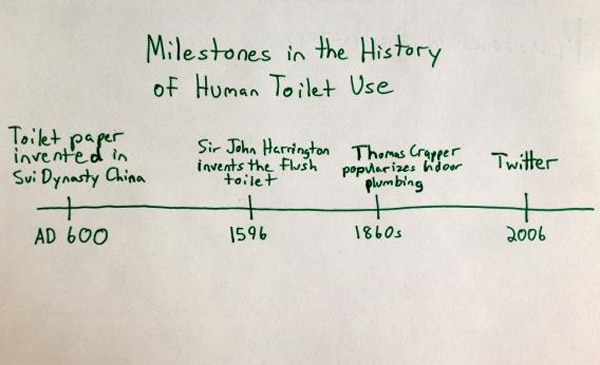 Milestones in the History
of Human Toilet Use
Toilet paper
invented in
Sui Dynasty China
Sir John Harrington
invents the flush
toilet
Thomas Crapper
popularizes indoor
plumbing
Twitter
AD 600
1596
1860s
2006